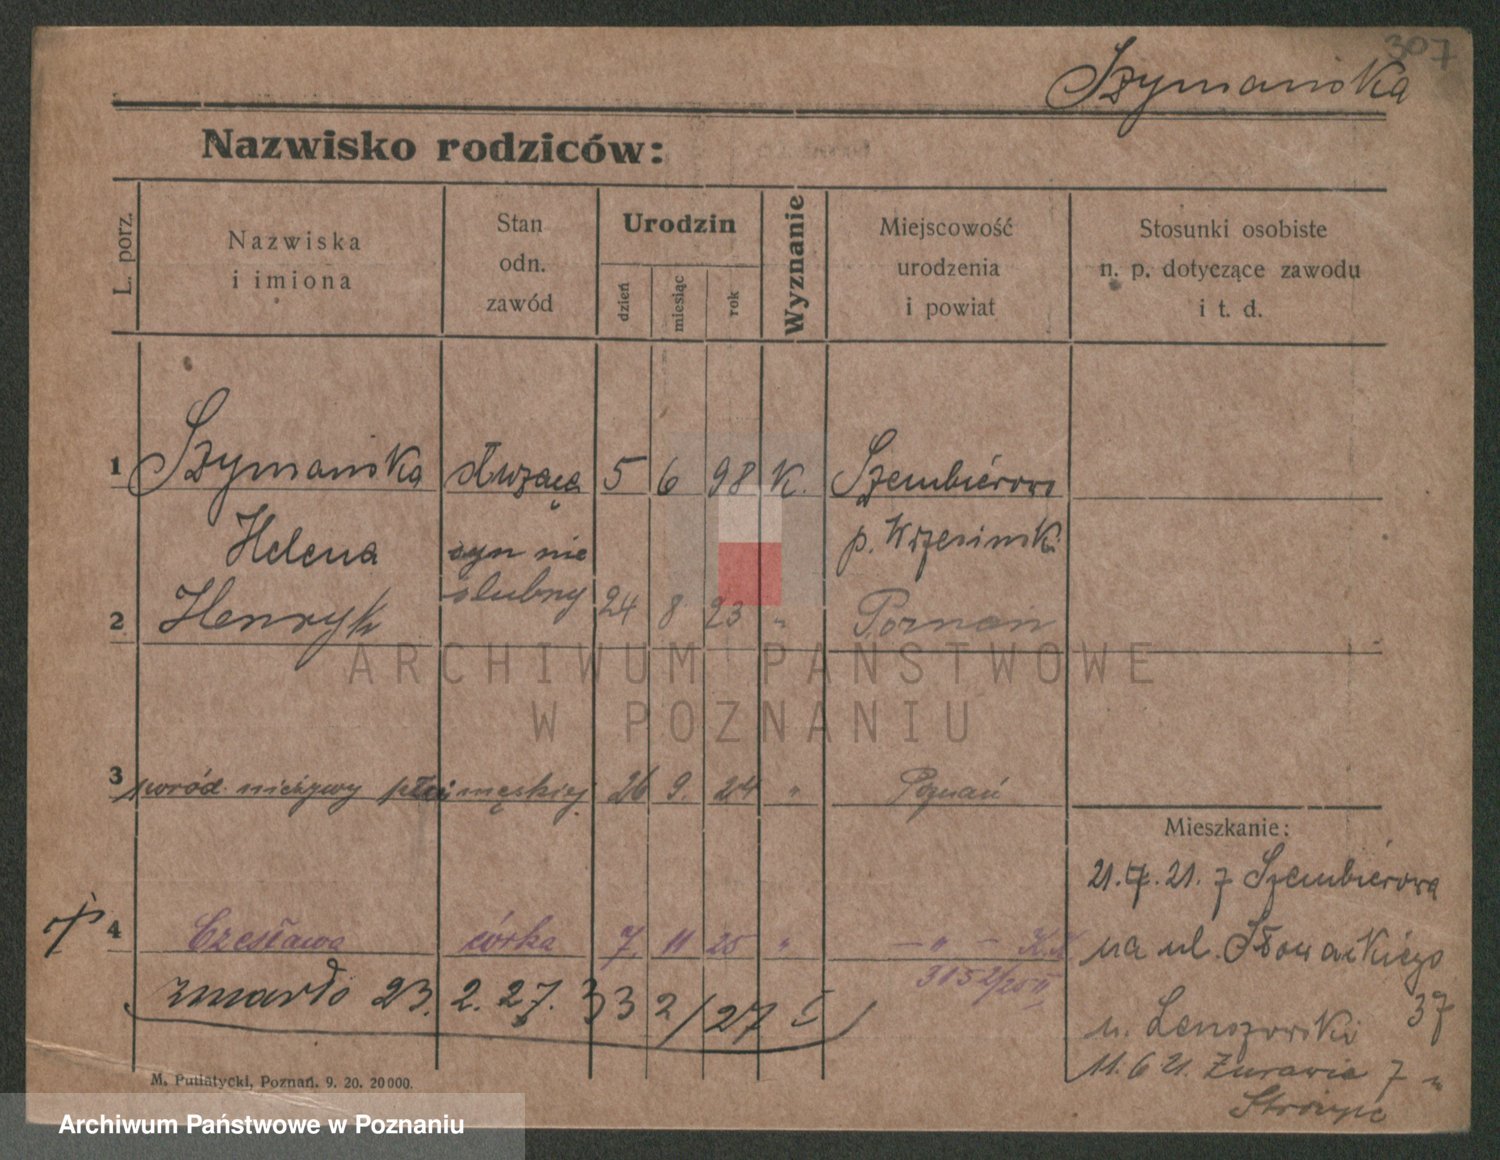 307
Szymańska
Nazwisko rodziców:
L. porz.
Nazwiska
i imiona
Stan
odn.
zawód
Urodzin
dzień
miesiąc
rok
Wyznanie
Miejscowość
urodzenia
i powiat
Stosunki osobiste
n. p. dotyczące zawodu
i t. d.
1 Szymańska służąca 5 6 98 K. Szembierowo
Helena p. Wrzesiński
syn nie
ślubny
2 Henryk 24 8 23 " Poznań
ARCHIWUM PAŃSTWOWE
W POZNANIU
3 poród nieżywy płci męskiej 26 9. 24 " Poznań
Mieszkanie:
21.7.21. z Szembierowa
4 Czesława córka 7. 11 25 " — " —
na ul. Słowackiego
37
9152/25 II
zmarło 23. 2. 27. 332/27 I
u.
11. 6 21. Żurawia 7 u
M. Putiatycki, Poznań. 9. 20. 20000.
Archiwum Państwowe w Poznaniu